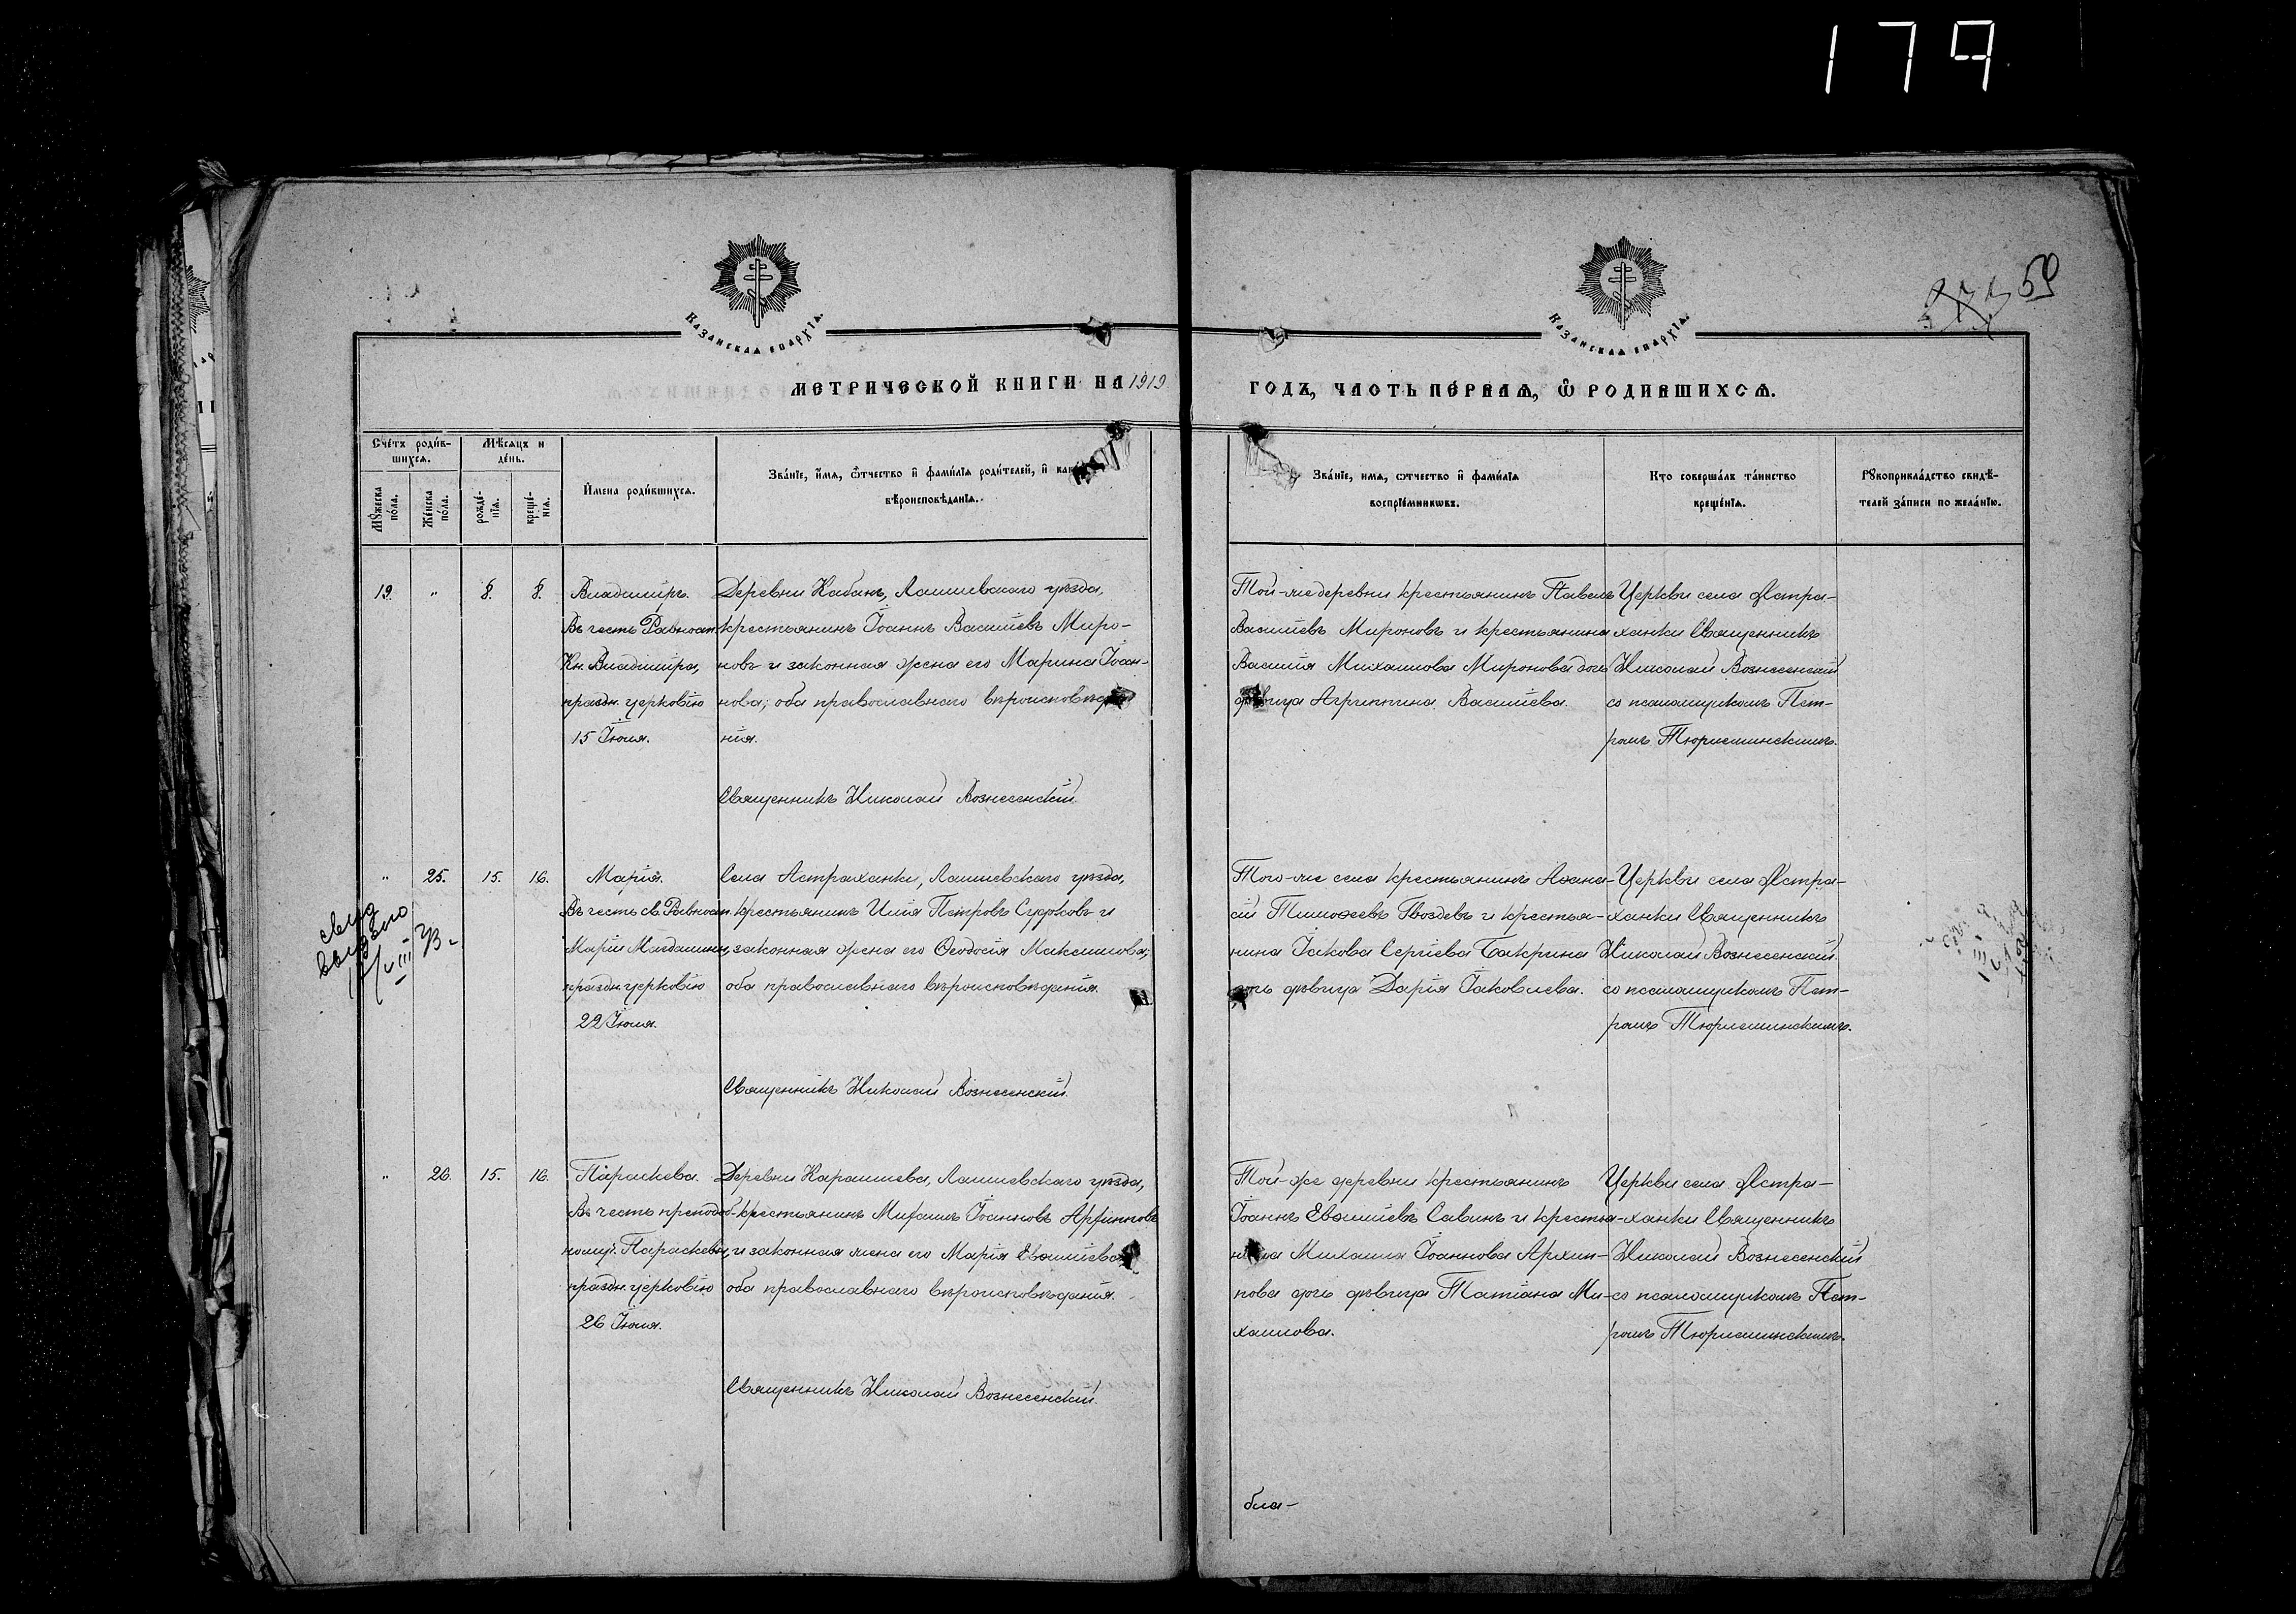 179
59
КАЗАНСКАЯ ЕПАРХІЯ.
КАЗАНСКАЯ ЕПАРХІЯ.
МЕТРИЧЕСКОЙ КНИГИ НА 1919
ГОДЪ, ЧАСТЬ ПЕРВАЯ, Ѿ РОДИВШИХСЯ.
Счетъ родив-
шихся.
Мѣсяцъ и
день.
Мꙋжеска
пола.
Женска
пола.
рожде-
нія.
креще-
нія.
Имена родившихся.
Званіе, имя, ѿтчество и фамилія родителей, и
вѣроисповѣданія.
Званіе, имя, ѿтчество и фамилія
воспріемникѡвъ.
Кто совершалъ таинство
крещенія.
Рꙋкоприкладство свидѣ-
телей записи по желанію.
19.
"
8.
8.
Владиміръ.
Въ честь Равноап.
Кн. Владиміра,
праздн. церковію
15 Іюля.
Деревни Кабанъ, Лаишевскаго уѣзда,
крестьянинъ Іоаннъ Васильевъ Миро-
новъ и законная жена его Марина Іоан-
нова; оба православнаго вѣроисповѣда-
нія.
Священникъ Николай Вознесенскій.
Той-же деревни крестьянинъ Павелъ
Васильевъ Мироновъ и крестьянина
Василія Михаилова Миронова дочь
дѣвица Агриппина Васильева.
Церкви села Астра-
ханки Священникъ
Николай Вознесенскій
со псаломщикомъ Пет-
ромъ Тюрнеминскимъ.
"
25.
15.
16.
Марія.
Въ честь св. Равноап.
Маріи Магдалины,
праздн. церковію
22 Іюля.
Села Астраханки, Лаишевскаго уѣзда,
крестьянинъ Илія Петровъ Сурковъ и
законная жена его Ѳеодосія Максимова;
оба православнаго вѣроисповѣданія.
Священникъ Николай Вознесенскій.
Того-же села крестьянинъ Аѳана-
сій Тимоѳеевъ Гвоздевъ и крестья-
нина Іакова Сергіева Бакрина
дочь дѣвица Дарія Іаковлева.
Церкви села Астра-
ханки Священникъ
Николай Вознесенскій
со псаломщикомъ Пет-
ромъ Тюрнеминскимъ.
"
26.
15.
16.
Параскева.
Въ честь преподоб-
номуч. Параскевы,
праздн. церковію
26 Іюля.
Деревни Караишева, Лаишевскаго уѣзда,
крестьянинъ Михаилъ Іоанновъ Архиповъ
и законная жена его Марія
оба православнаго вѣроисповѣданія.
Священникъ Николай Вознесенскій.
Той-же деревни крестьянинъ
Іоаннъ Савинъ и крестья-
нина Михаила Іоаннова Архип-
пова дочь дѣвица Татіана Ми-
хаилова.
Церкви села Астра-
ханки Священникъ
Николай Вознесенскій
со псаломщикомъ Пет-
ромъ Тюрнеминскимъ.
бла-